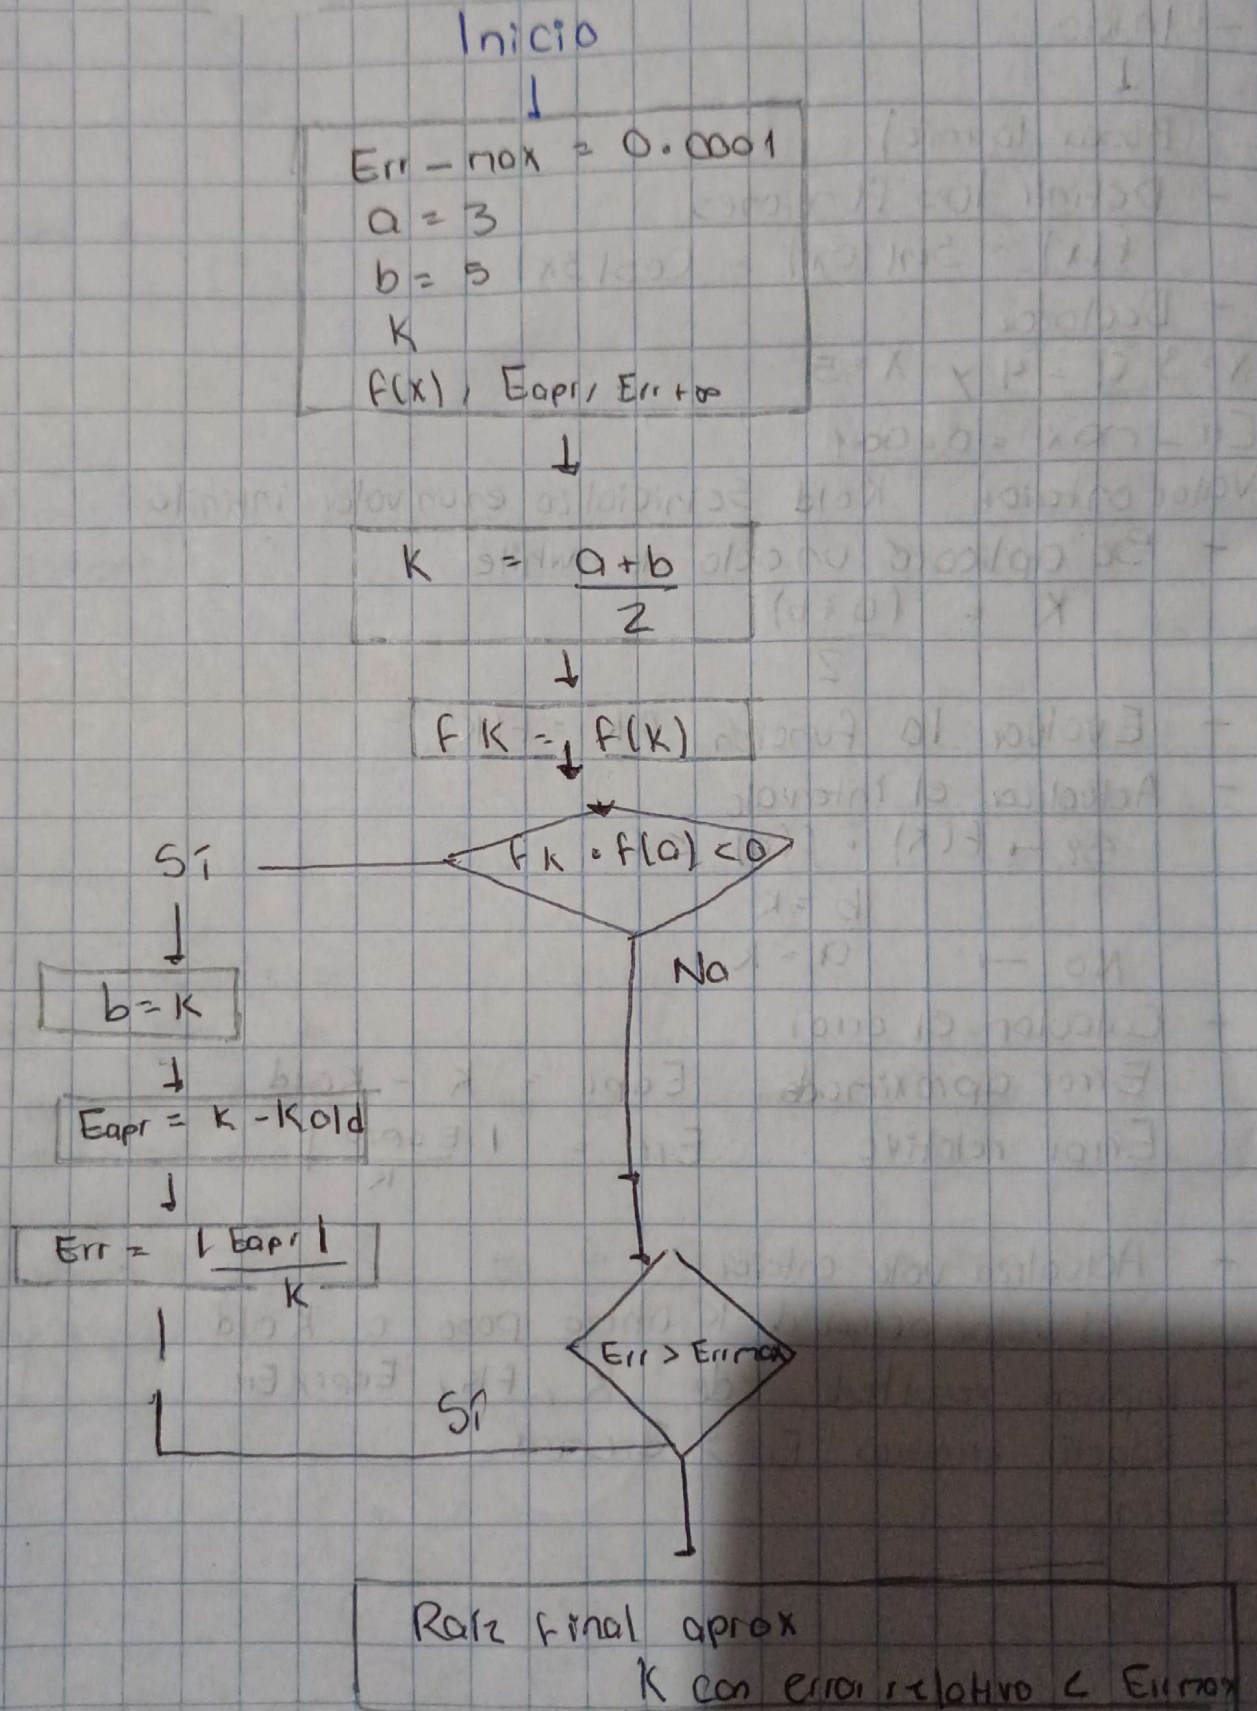 Inicio
Err-max = 0.0001
a = 3
b = 5
K
f(x), Eapr, Err +∞
K = a+b
2
fK = f(K)
fK · f(a) < 0
Sí
No
b = K
Eapr = K - Kold
Err = |Eapr|
K
Err > Errmax
Sí
Raíz final aprox
K con error relativo < Errmax